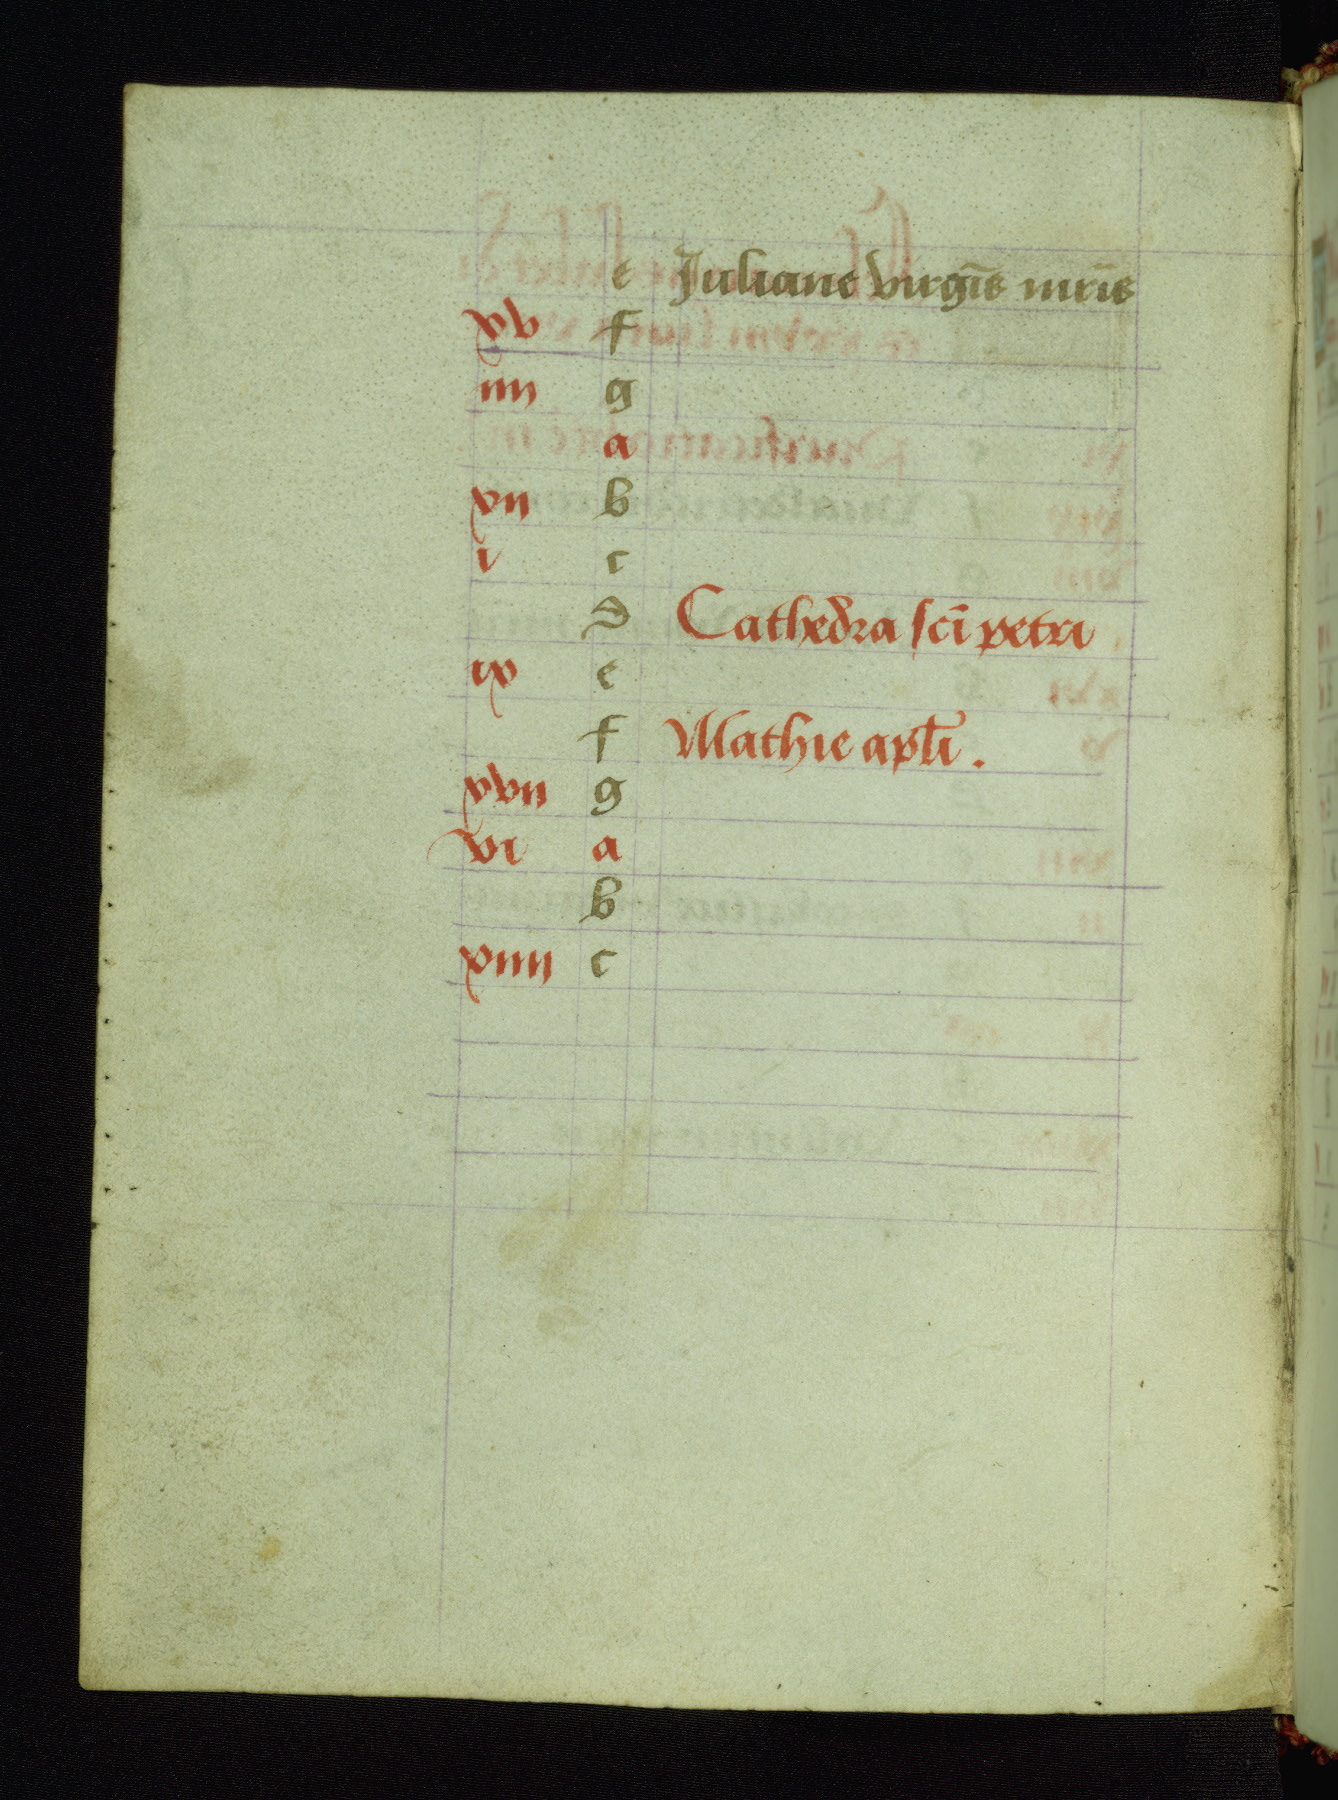 e Juliane virgĩs mrĩs
xv f
iiii g
a
xii b
i c
d Cathedra scĩ petri
ix e
f Mathie apłi .
xvii g
vi a
b
xiiii c